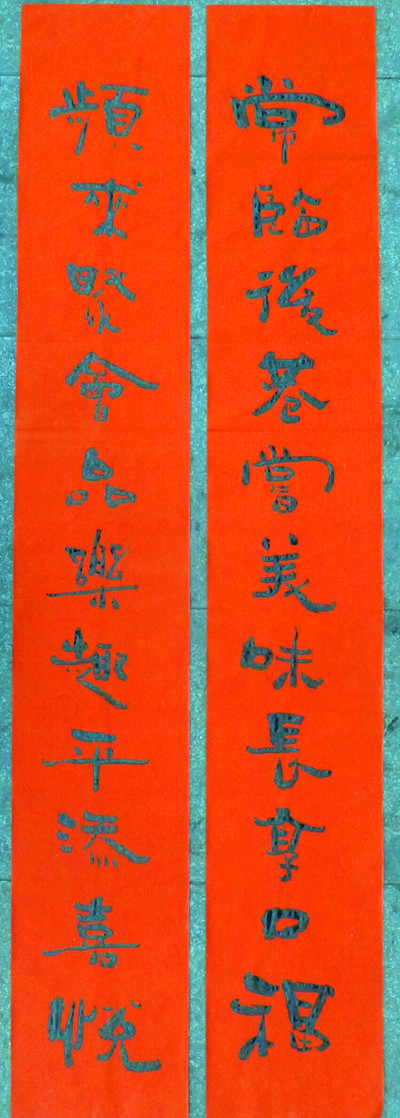 常臨後巷嘗美味長享口福
頻來聚會品樂趣平添喜悅